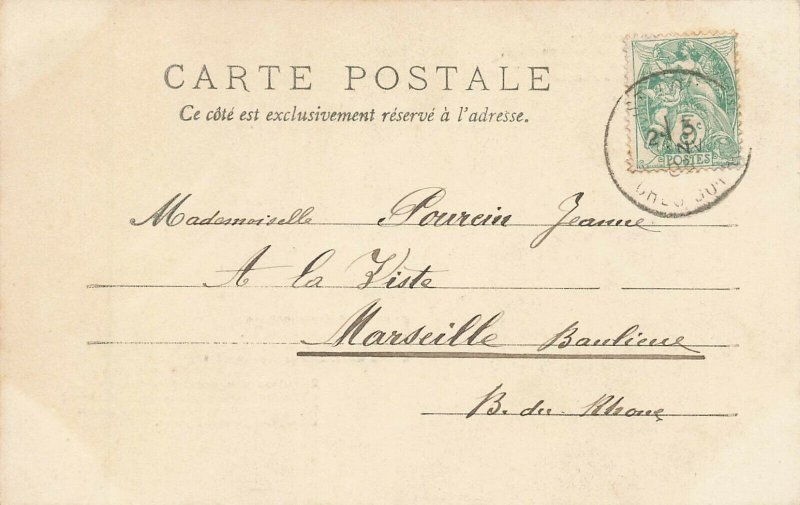 CARTE POSTALE
Ce côté est exclusivement réservé à l'adresse.
5c
POSTES
Mademoiselle Pourcin Jeanne
A la Viste
Marseille Banlieue
B. du Rhone